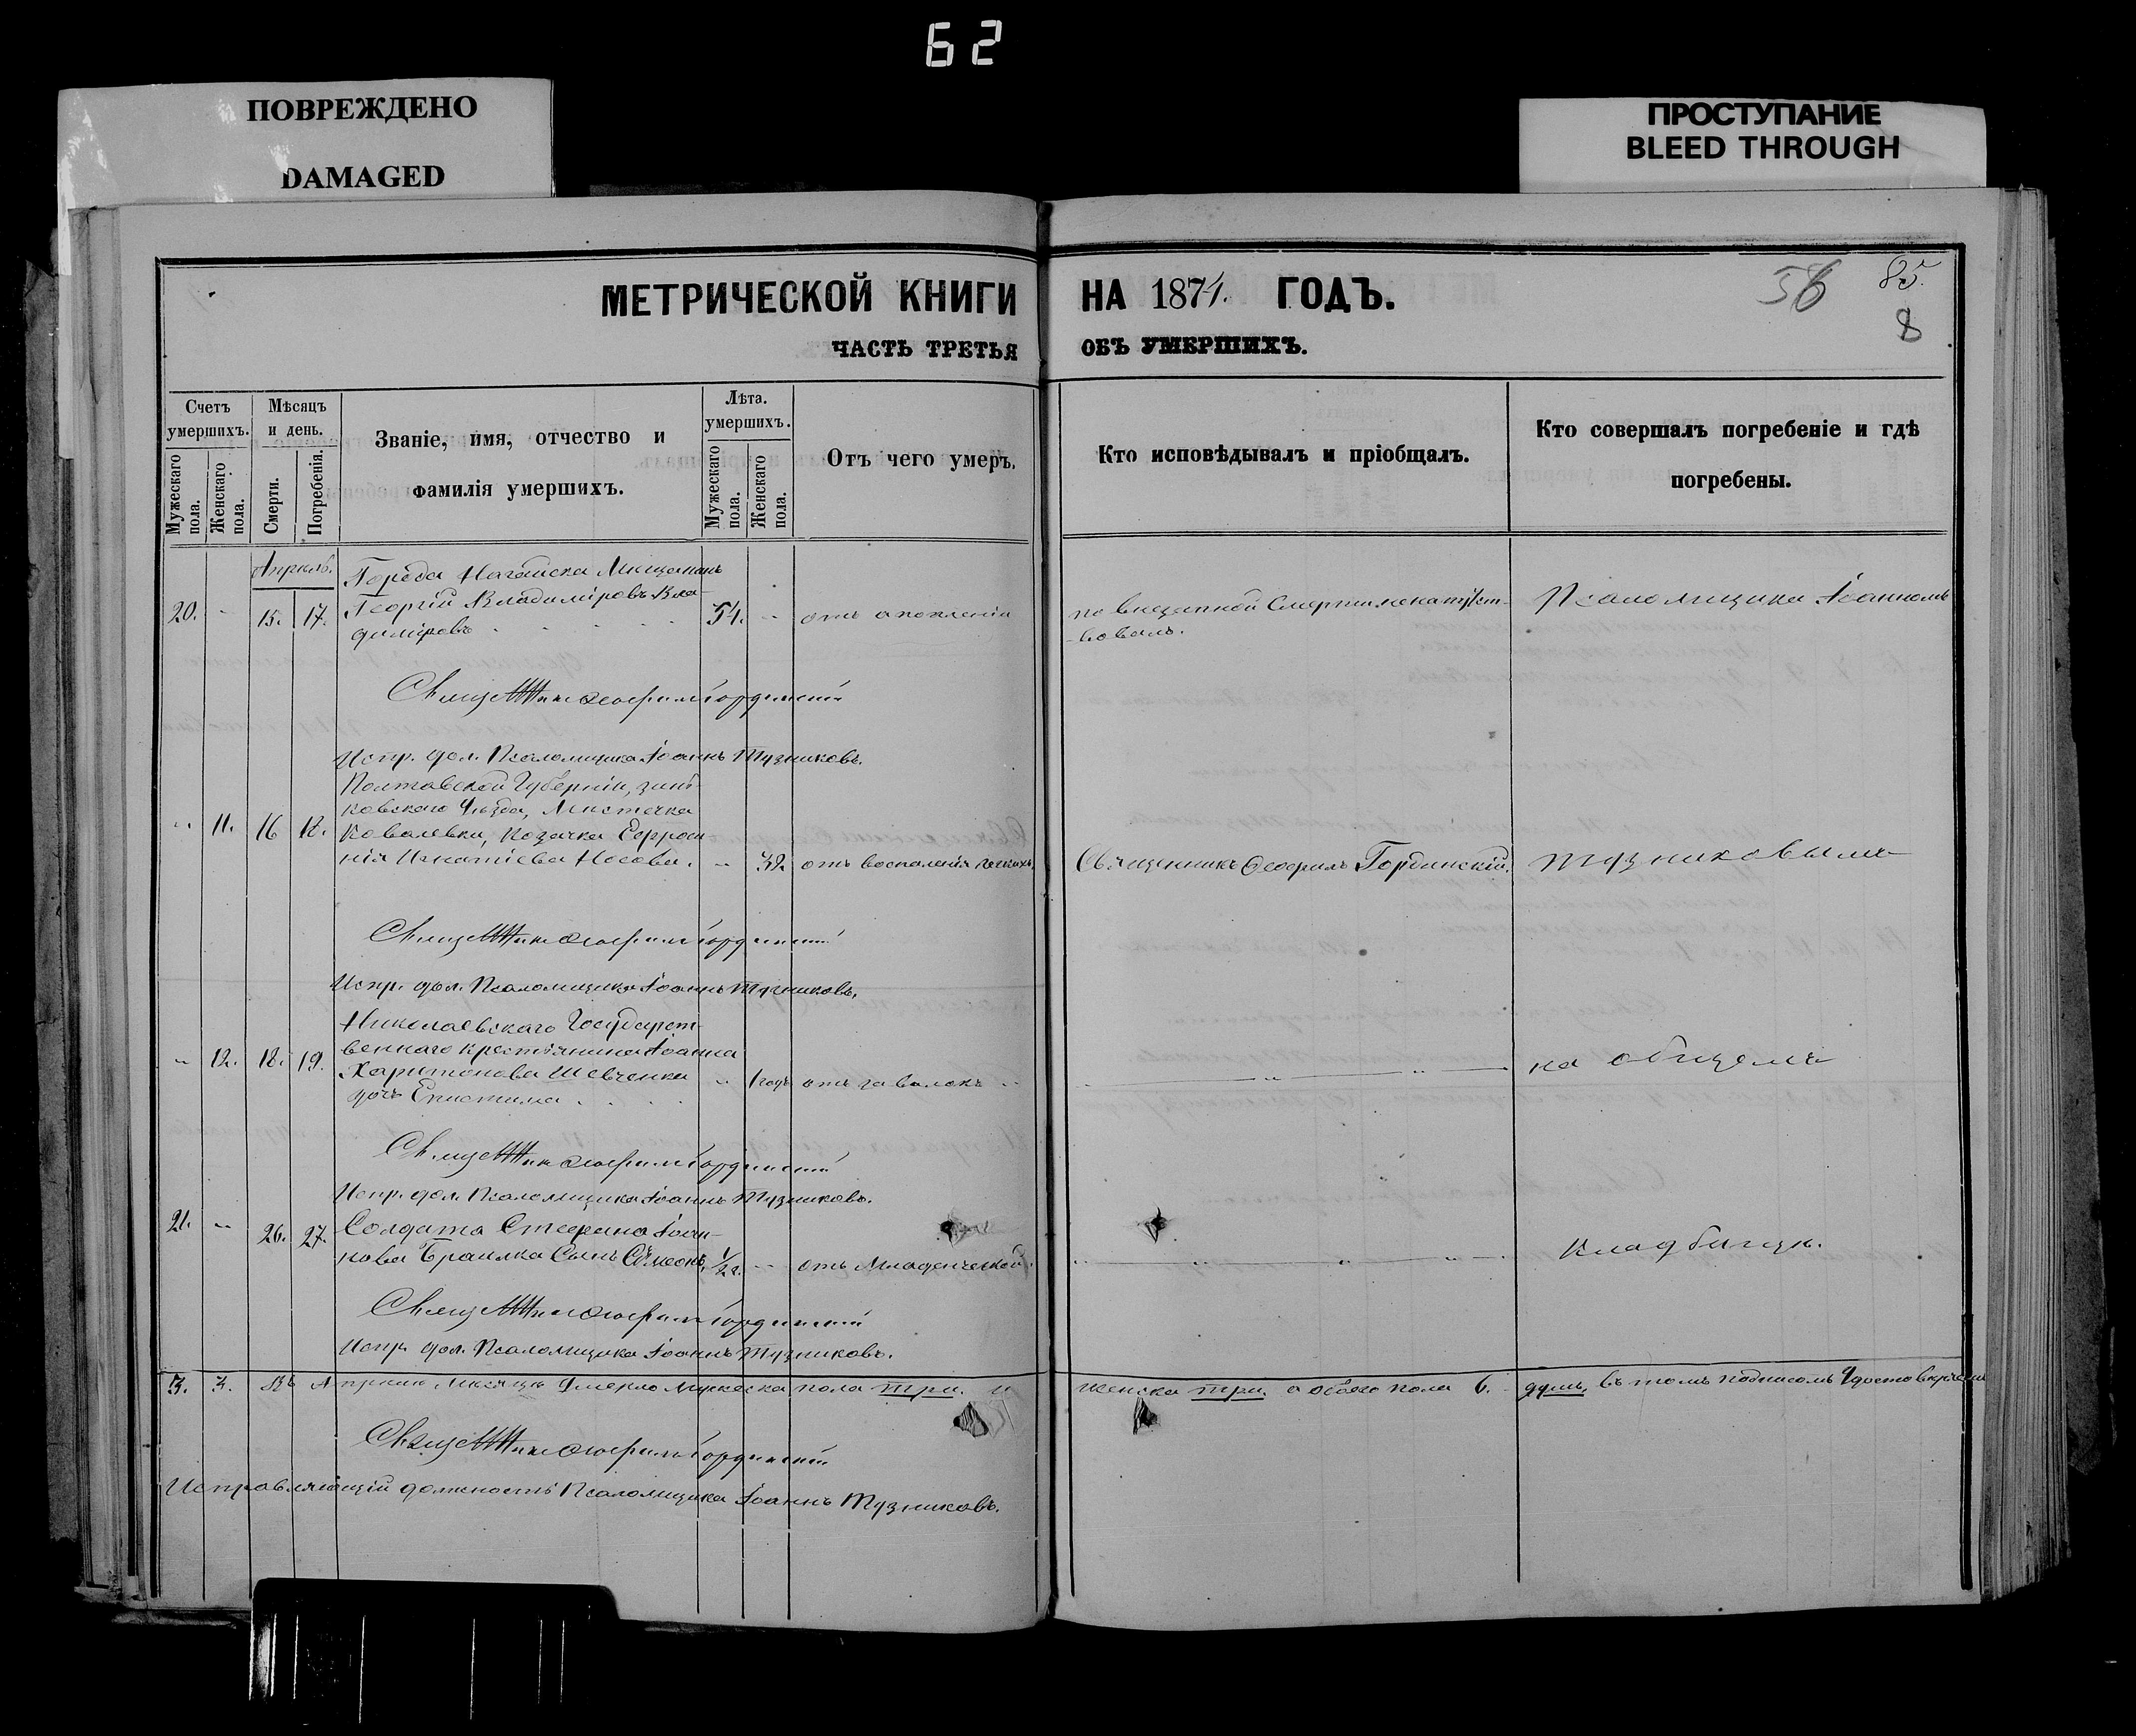 62
ПОВРЕЖДЕНО
DAMAGED
ПРОСТУПАНИЕ
BLEED THROUGH
МЕТРИЧЕСКОЙ КНИГИ НА 1871. ГОДЪ.
56 85.
8
ЧАСТЬ ТРЕТЬЯ ОБЪ УМЕРШИХЪ.
Счетъ умершихъ.
Мужескаго пола.
Женскаго пола.
Мѣсяцъ и день.
Смерти.
Погребенія.
Званіе, имя, отчество и
фамилія умершихъ.
Лѣта. умершихъ.
Мужескаго пола.
Женскаго пола.
Отъ чего умеръ.
Кто исповѣдывалъ и пріобщалъ.
Кто совершалъ погребеніе и гдѣ
погребены.
Апрель.
Города Ногайска Мещанинъ
20. 15. 17. Георгій Владиміровъ Вла- 54. отъ
диміровъ
по внезапной Смерти
Псаломщика Іоанномъ
Священникъ Ѳеофилъ Гординскій
Испр. дол. Псаломщика Іоаннъ Тузниковъ.
Полтавской Губерніи, Зинь-
ковского Уѣзда, Мѣстечка
11. 16 18. Ковалевки, Козачка Евфроси
нія Игнатіева Носова. 32 отъ воспаленія легкихъ.
Священникъ Ѳеофилъ Гординскій.
Тузниковымъ
Священникъ Ѳеофилъ Гординскій
Испр. дол. Псаломщика Іоаннъ Тузниковъ.
Николаевскаго Государст-
венного крестьянина Іоанна
12. 18. 19. Харитонова Шевченка 1 годъ отъ
дочь Епистима
на общемъ
Священникъ Ѳеофилъ Гординскій
Испр. дол. Псаломщика Іоаннъ Тузниковъ.
21. 26. 27. Солдата Стефана Іоан-
нова Браилка Сынъ Сѵмеонъ. 1/2 г. отъ Младенческой.
Кладбищѣ.
Священникъ Ѳеофилъ Гординскій
Испр. дол. Псаломщика Іоаннъ Тузниковъ.
3. 3. Въ Апрелѣ Мѣсяцѣ Умерло Мужеска пола три. и женска три. а обоего пола 6. душъ, въ томъ подписомъ
Священникъ Ѳеофилъ Гординскій
Исправляющій должность Псаломщика Іоаннъ Тузниковъ.